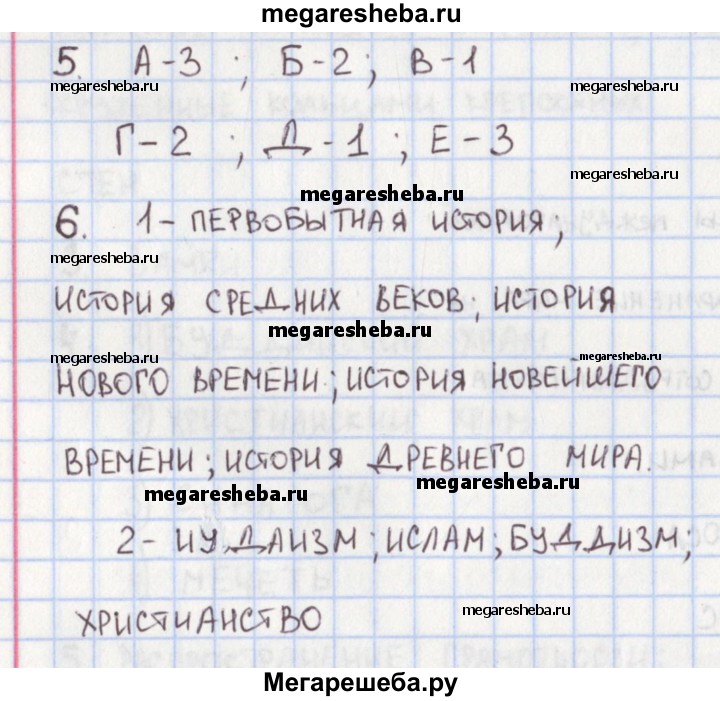 megaresheba.ru
5. А-3 ; Б-2; В-1
megaresheba.ru megaresheba.ru
Г-2 ; Д-1; Е-3
megaresheba.ru megaresheba.ru
6. 1- ПЕРВОБЫТНАЯ ИСТОРИЯ,
megaresheba.ru
ИСТОРИЯ СРЕДНИХ ВЕКОВ; ИСТОРИЯ
megaresheba.ru
megaresheba.ru megaresheba.ru
НОВОГО ВРЕМЕНИ; ИСТОРИЯ НОВЕЙШЕГО
ВРЕМЕНИ; ИСТОРИЯ ДРЕВНЕГО МИРА.
megaresheba.ru megaresheba.ru
2- ИУДАИЗМ; ИСЛАМ; БУДДИЗМ;
ХРИСТИАНСТВО megaresheba.ru
Мегарешеба.ру